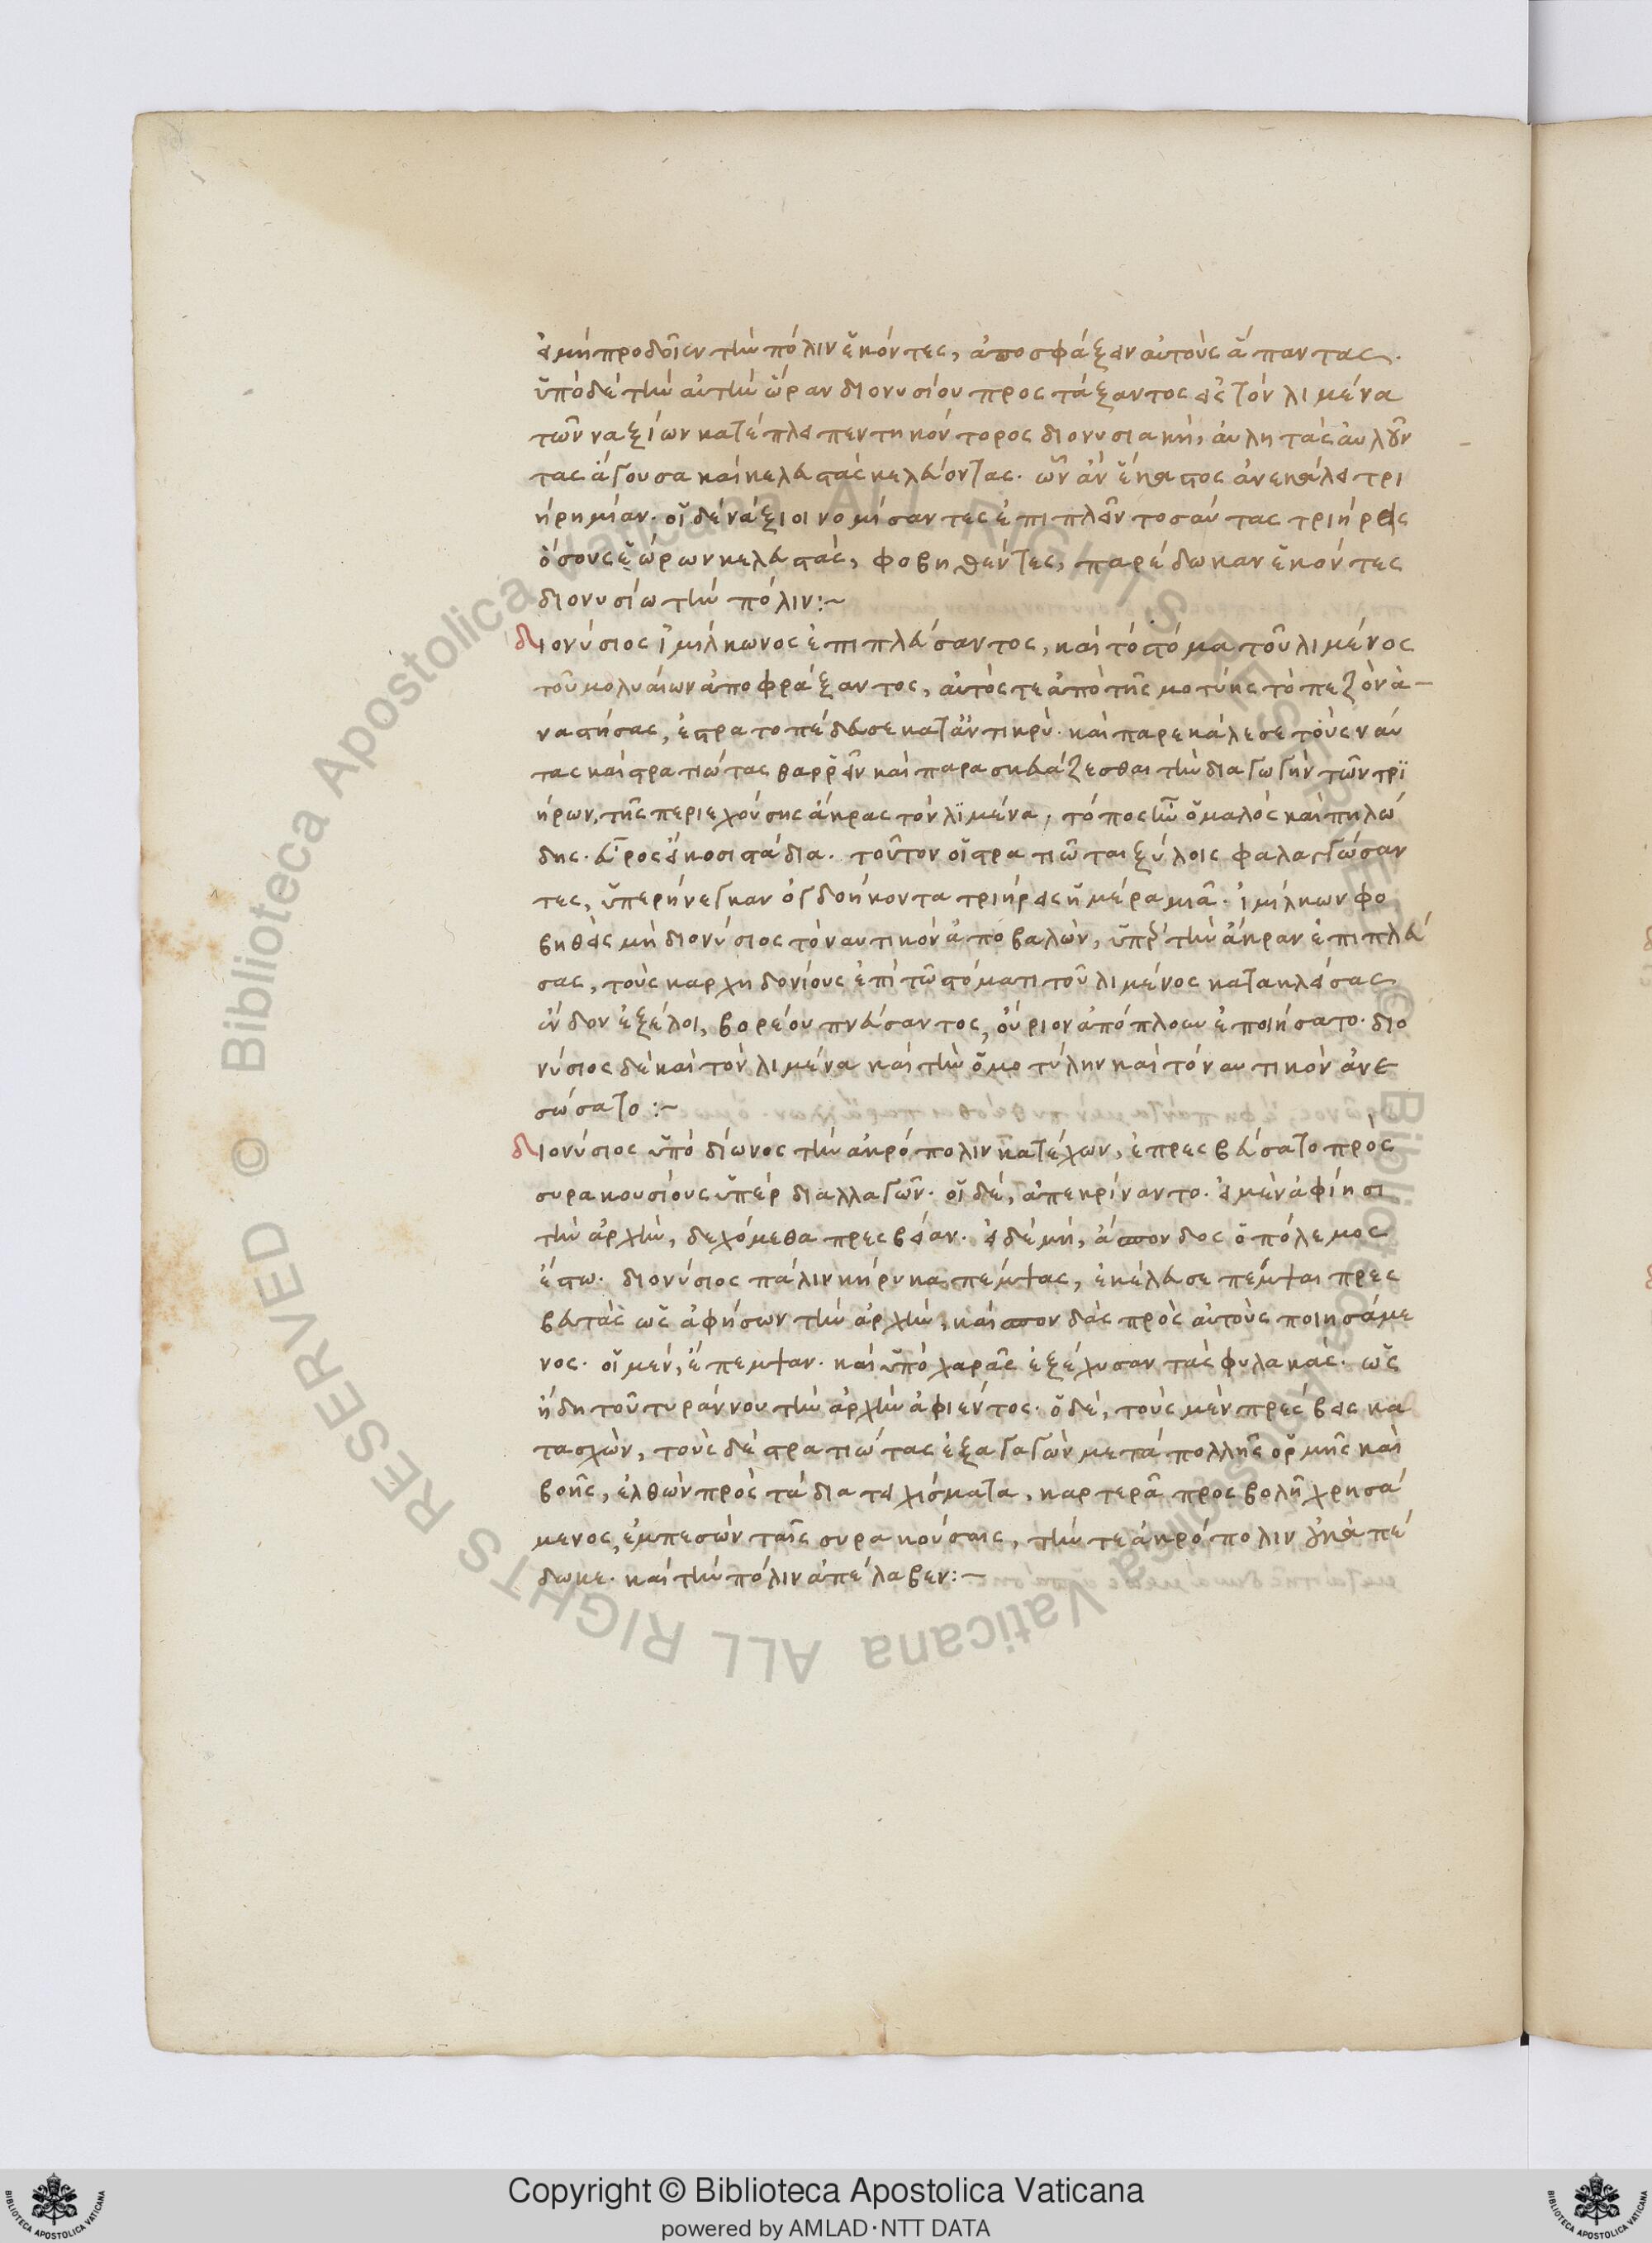 εἰ μὴ προδοῖεν τὴν πόλιν ἑκόντες, ἀποσφάξειν αὐτοὺς ἅπαντας.
ὑπὸ δὲ τὴν αὐτὴν ὥραν διονυσίου προστάξαντος εἰς τὸν λιμένα
τῶν ναξίων κατέπλει πεντηκόντορος διονυσιακὴ, αὐλητὰς αὐλοῦν
τας ἄγουσα καὶ κελευστὰς κελεύοντας. ὧν ἂν ἕκαστος ἀνεκάλει τρι
ήρη μίαν. οἱ δὲ νάξιοι νομίσαντες ἐπιπλεῖν τοσαύτας τριήρεις
ὅσους ἑώρων κελευστὰς, φοβηθέντες, παρέδωκαν ἑκόντες
διονυσίω τὴν πόλιν:~
διονύσιος ἱμίλκωνος ἐπιπλεύσαντος, καὶ τὸ στόμα τοῦ λιμένος
τοῦ μολυαίων ἀποφράξαντος, αὐτός τε ἀπὸ τῆς μοτύης τὸ πεζὸν ἀ-
ναστήσας, ἐστρατοπέδευσε καταντικρύ. καὶ παρεκάλεσε τοὺς ναύ
τας καὶ στρατιώτας θαρρεῖν καὶ παρασκευάζεσθαι τὴν διαγωγὴν τῶν τρι
ήρων, τῆς περιεχούσης ἄκρας τὸν λιμένα, τόπος ἦν ὁμαλὸς καὶ πηλώ
δης. εὖρος εἴκοσι στάδια. τοῦτον οἱ στρατιῶται ξύλοις φαλαγγώσαν
τες, ὑπερήνεγκαν ὀγδοήκοντα τριήρεις ἡμέρα μιᾶ. ἱμίλκων φο
βηθεὶς μὴ διονύσιος τὸ ναυτικὸν ἀποβαλὼν, ὑπὲρ τὴν ἄκραν ἐπιπλεύ
σας, τοὺς καρχηδονίους ἐπὶ τῶ στόματι τοῦ λιμένος κατακλείσας
ἔνδον ἐξέλοι, βορείου πνεύσαντος, οὔριον ἀπόπλουν ἐποιήσατο. διο
νύσιος δὲ καὶ τὸν λιμένα καὶ τὴν ὁμοτύλην καὶ τὸ ναυτικὸν ἀνε
σώσατο:~
διονύσιος ὑπὸ δίωνος τὴν ἀκρόπολιν κατέχων, ἐπρεσβεύσατο πρὸς
συρακουσίους ὑπὲρ διαλλαγῶν. οἱ δὲ, ἀπεκρίναντο. εἰ μὲν ἀφίησι
τὴν ἀρχὴν, δεχόμεθα πρεσβείαν. εἰ δὲ μὴ, ἄσπονδος ὁ πόλεμος
ἔστω. διονύσιος πάλιν κήρυκα πέμψας, ἐκέλευσε πέμψαι πρεσ
βευτὰς ὡς ἀφήσων τὴν ἀρχὴν, καὶ σπονδὰς πρὸς αὐτοὺς ποιησάμε
νος. οἱ μὲν, ἔπεμψαν. καὶ ὑπὸ χαρᾶς ἐξέλυσαν τὰς φυλακάς. ὡς
ἤδη τοῦ τυράννου τὴν ἀρχὴν ἀφιέντος. ὁ δὲ, τοὺς μὲν πρέσβεις κα
τασχὼν, τοὺς δὲ στρατιώτας ἐξαγαγὼν μετὰ πολλῆς ὁρμῆς καὶ
βοῆς, ἐλθὼν πρὸς τὰ διατειχίσματα, καρτερᾶ προσβολῆ χρησά
μενος, ἐμπεσὼν ταῖς συρακούσαις, τήν τε ἀκρόπολιν
δωκε. καὶ τὴν πόλιν ἀπέλαβεν:-
© Biblioteca Apostolica Vaticana ALL RIGHTS RESERVED
Copyright © Biblioteca Apostolica Vaticana
powered by AMLAD·NTT DATA